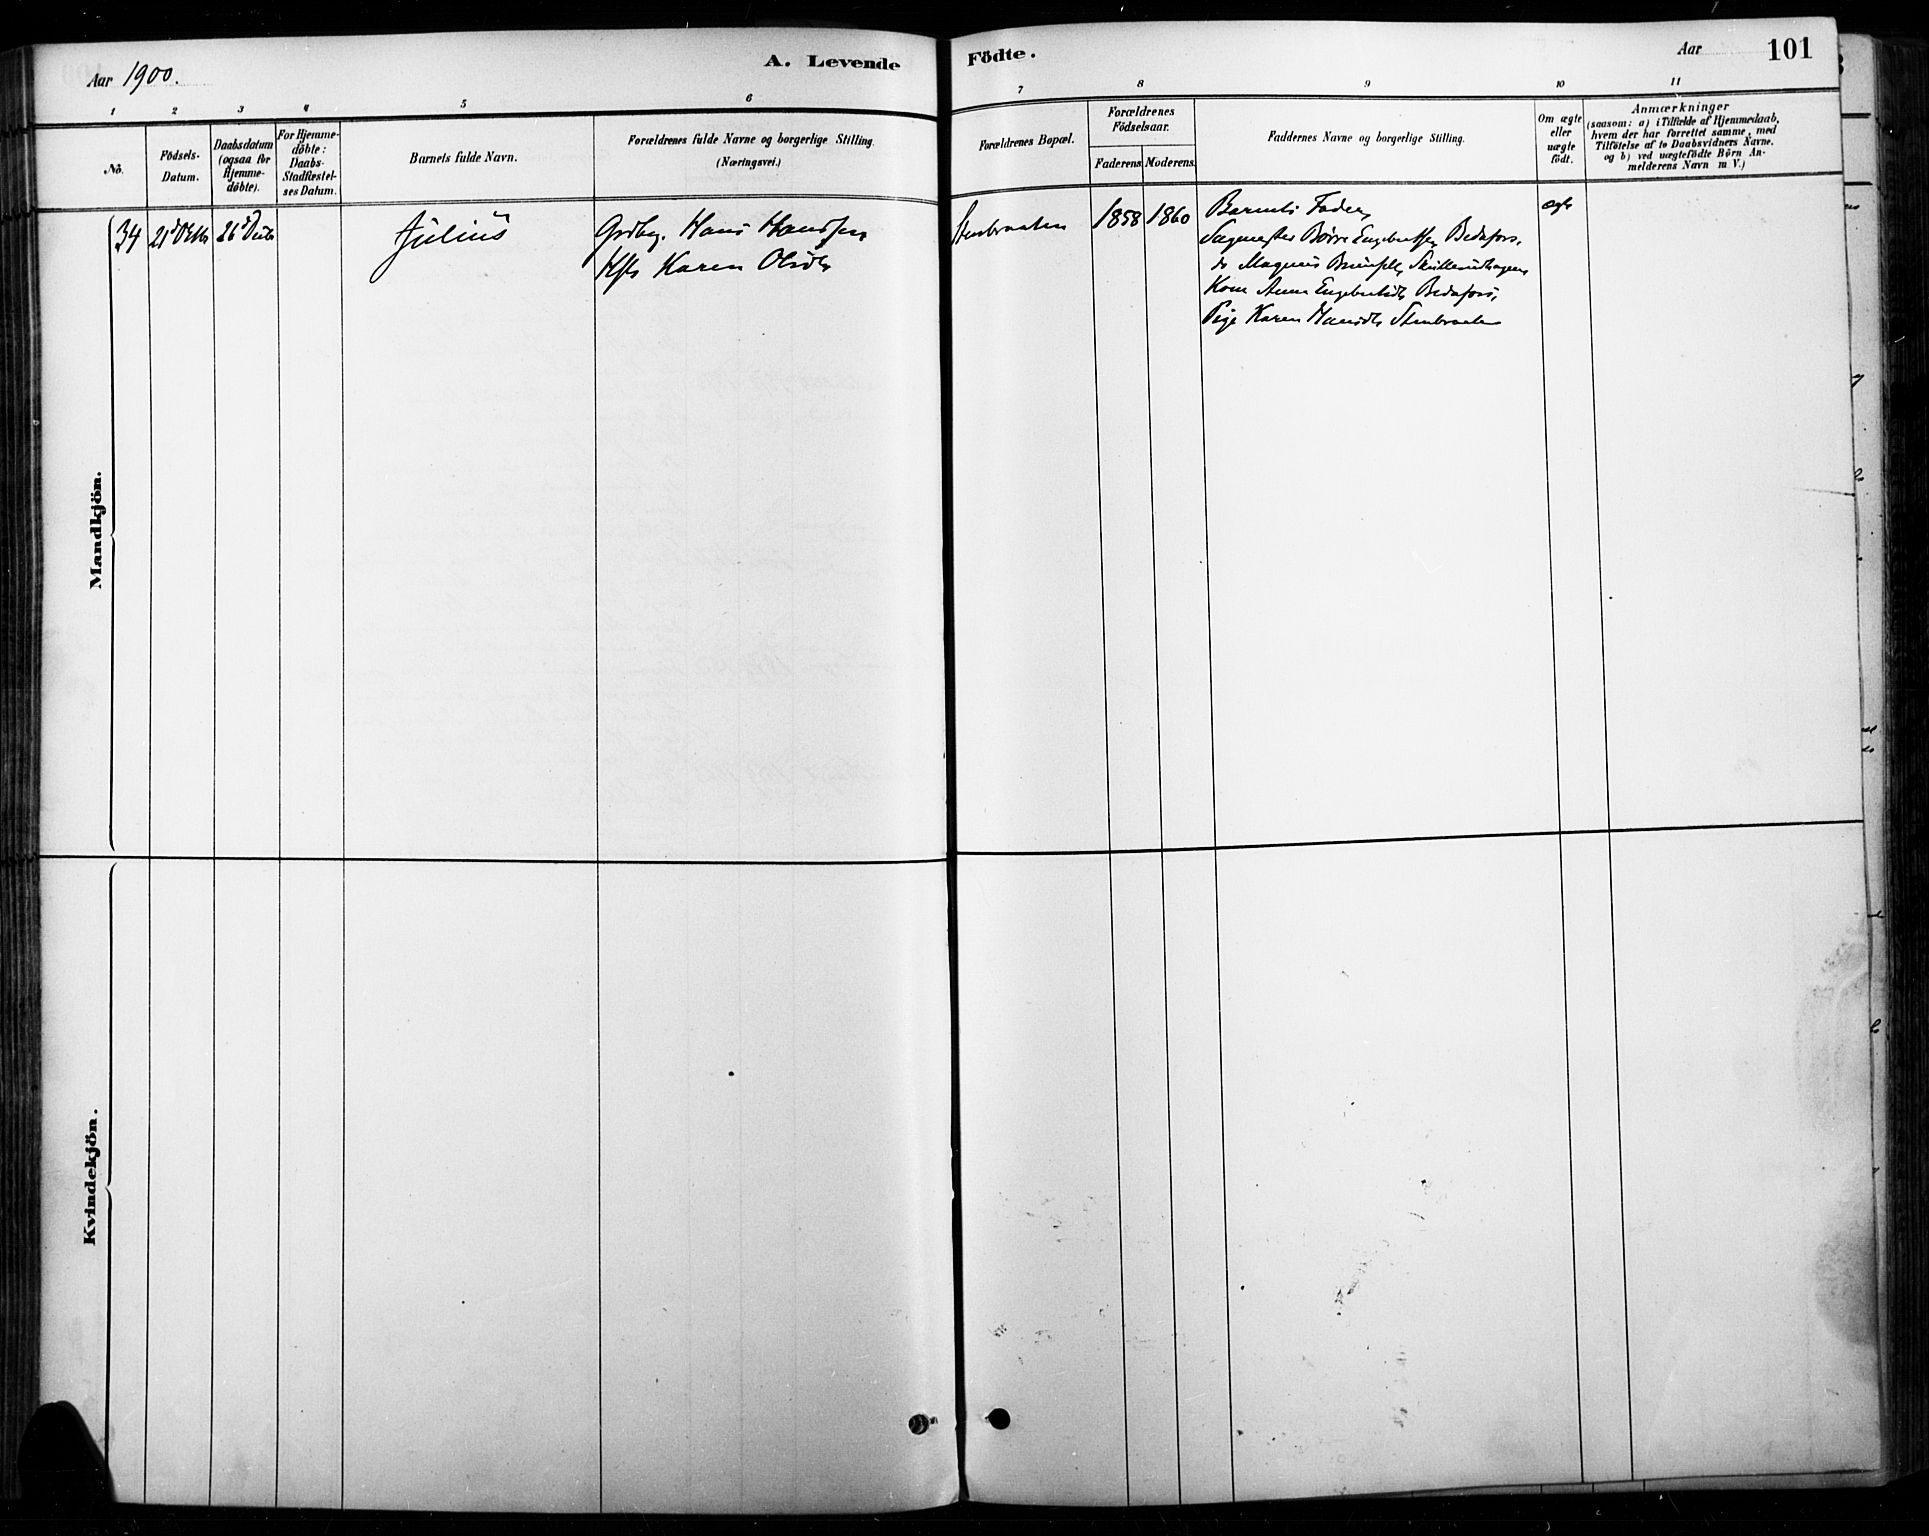 Aar 1900.
A. Levende
Födte.
Aar
101
1 2 3 4 5 6 7 8 9 10 11
No.
Födsels-
Datum.
Daabsdatum
(ogsaa for
Hjemme-
döbte).
For Hjemme-
döbte:
Daabs-
Stadfæstel-
ses Datum.
Barnets fulde Navn.
Forældrenes fulde Navne og borgerlige Stilling.
(Næringsvei.)
Forældrenes Bopæl.
Forældrenes
Födselsaar.
Faderens. Moderens.
Faddernes Navne og borgerlige Stilling.
Om ægte
eller
uægte
födt.
Anmærkninger
(saasom: a) i Tilfælde af Hjemmedaab,
hvem der har forrettet samme, med
Tilföielse af to Daabsvidners Navne.
og b) ved uægtefödte Börn An-
melderens Navn m V.)
Mandkjön.
34
Julius
Grdbr. Hans Hanssen
Kst Karen Olsdtr
Stenbraaten
1858 1860
Barnets Fader,
Sagmester Børre Engebretsen Bedafors,
do Magnus
Kone Anne Engebretsdtr Bedafors,
Pige Karen Hansdtr Stenbraaten
ægte
Kvindekjön.